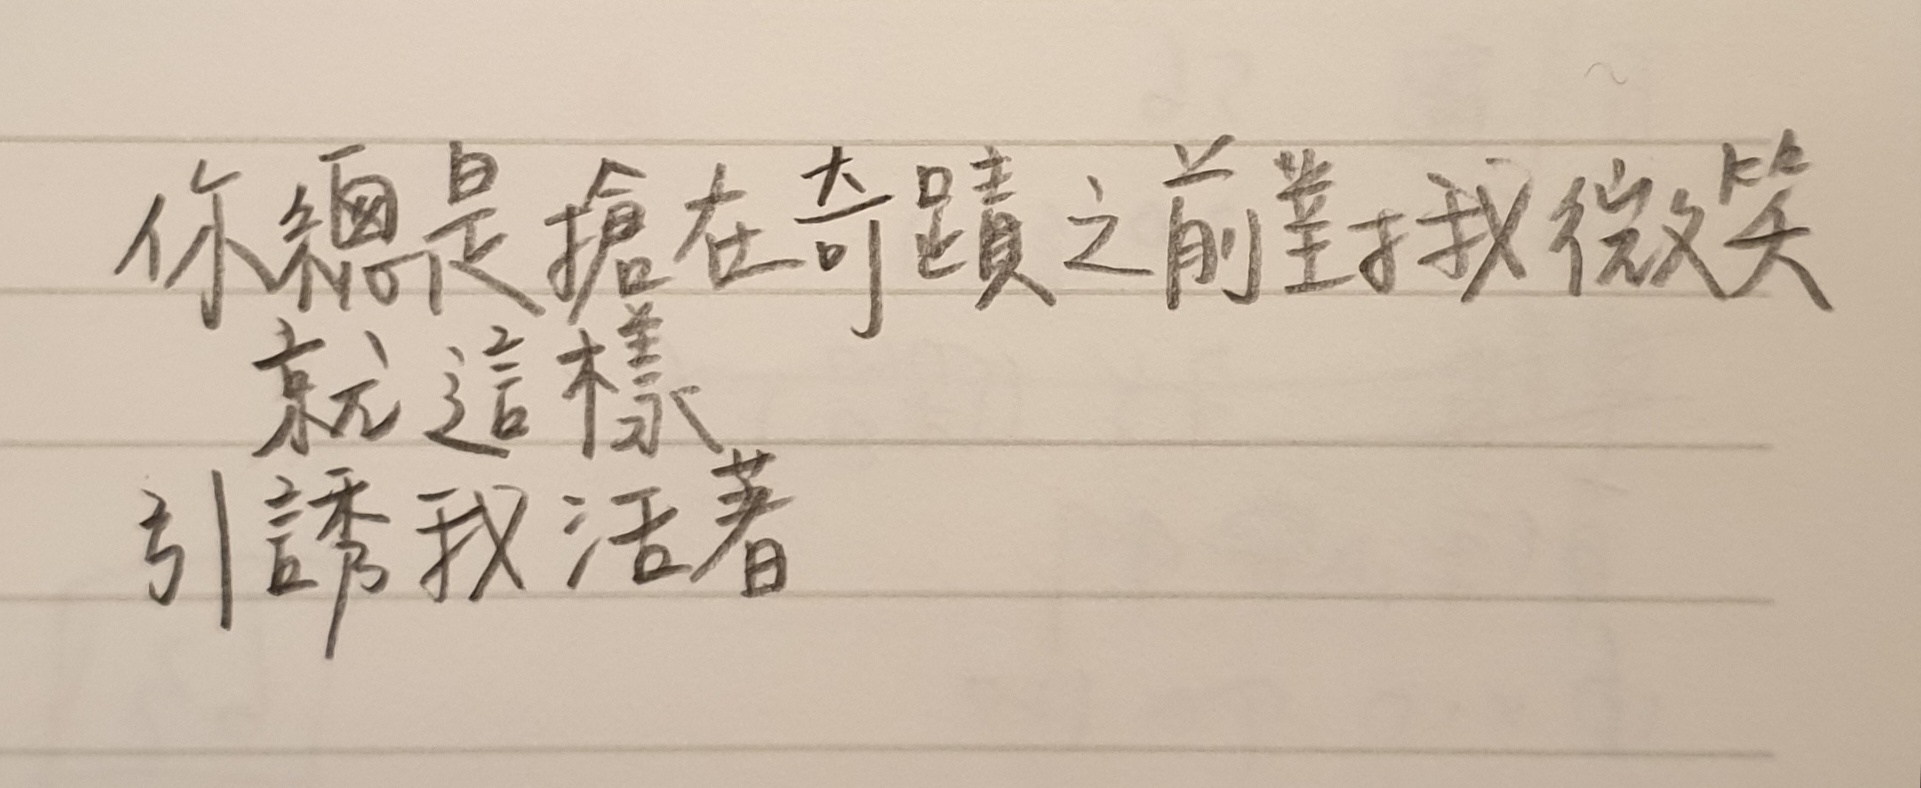 你總是搶在奇蹟之前對我微笑
就這樣
引誘我活著